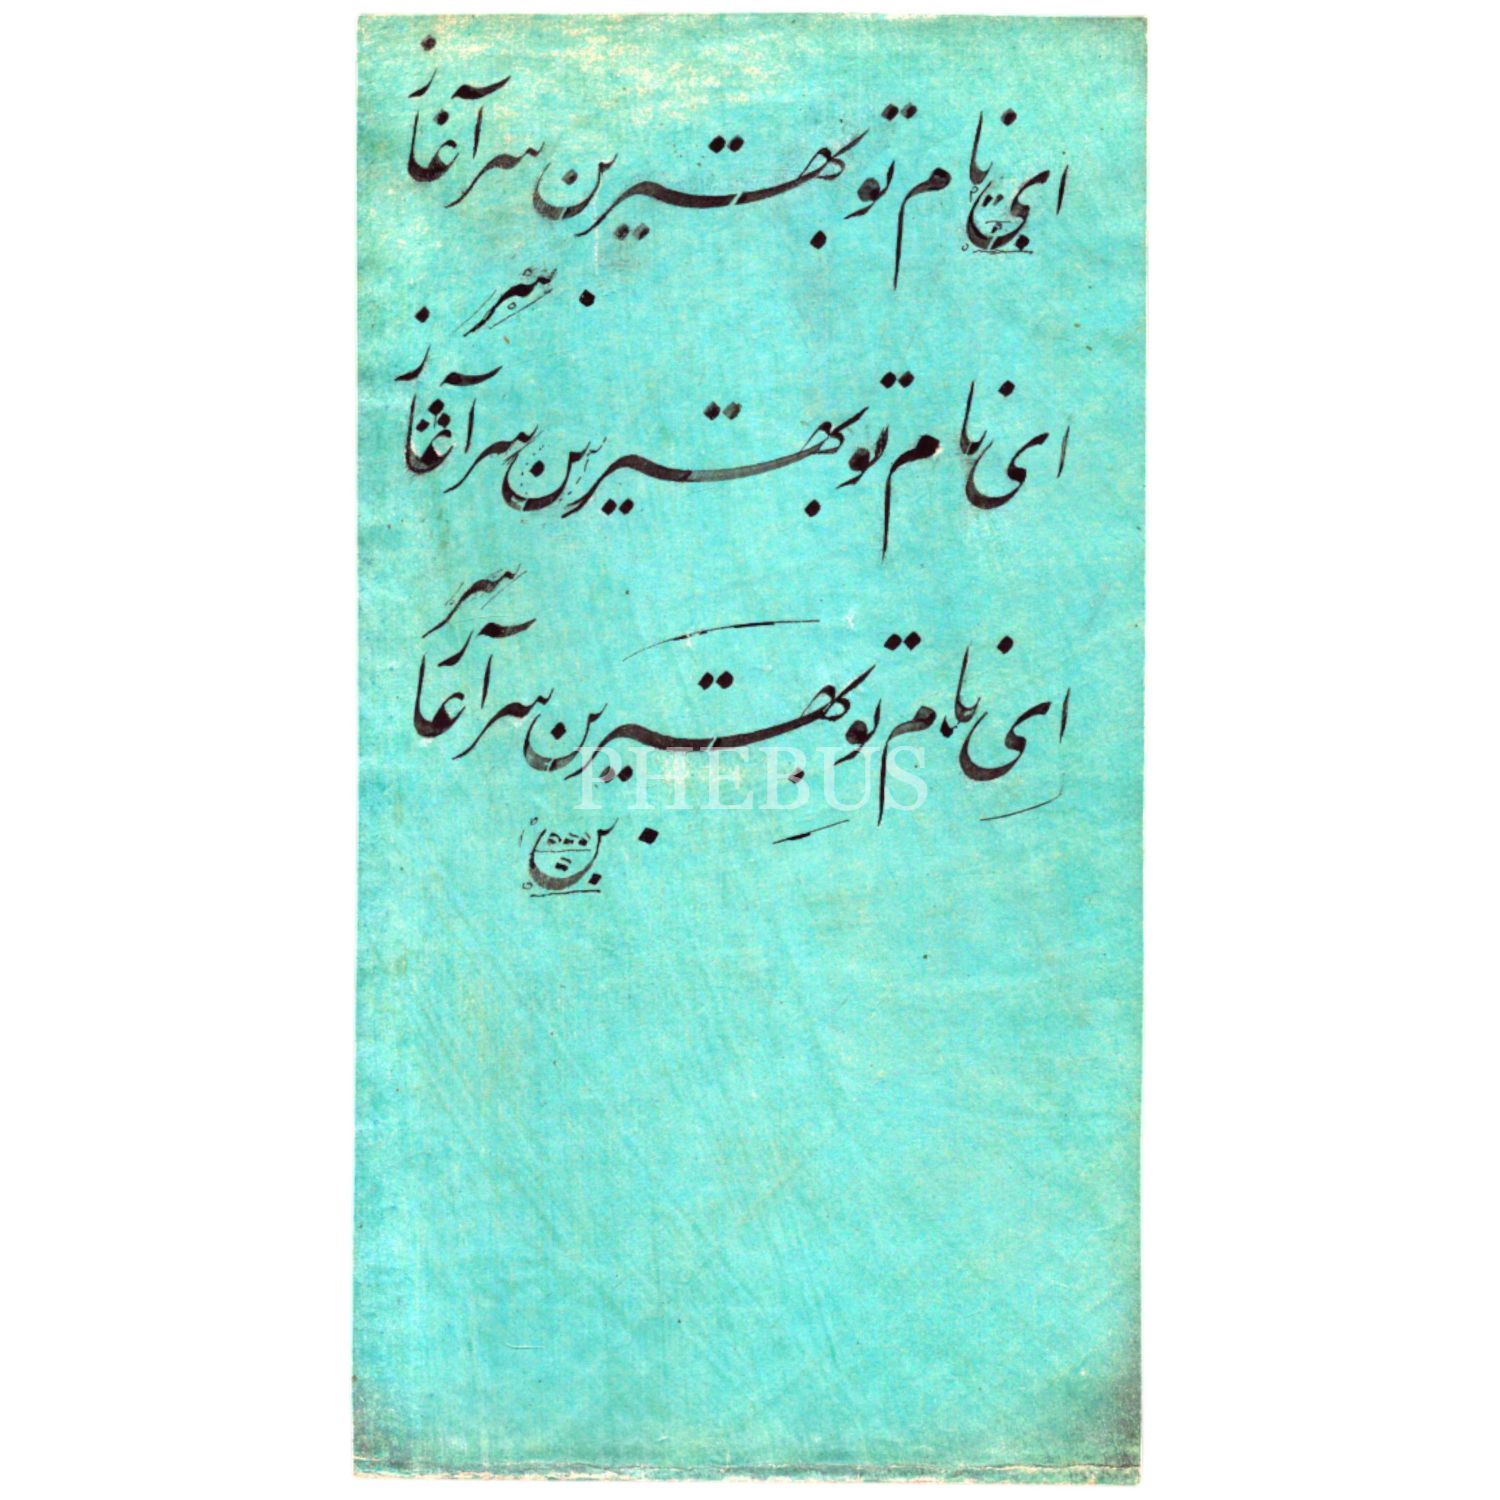 ای نام تو بهترین سر آغاز
سر
ای نام تو بهترین سر آغاز
سر
ای نام تو بهترین سر آغاز
PHEBUS
ین